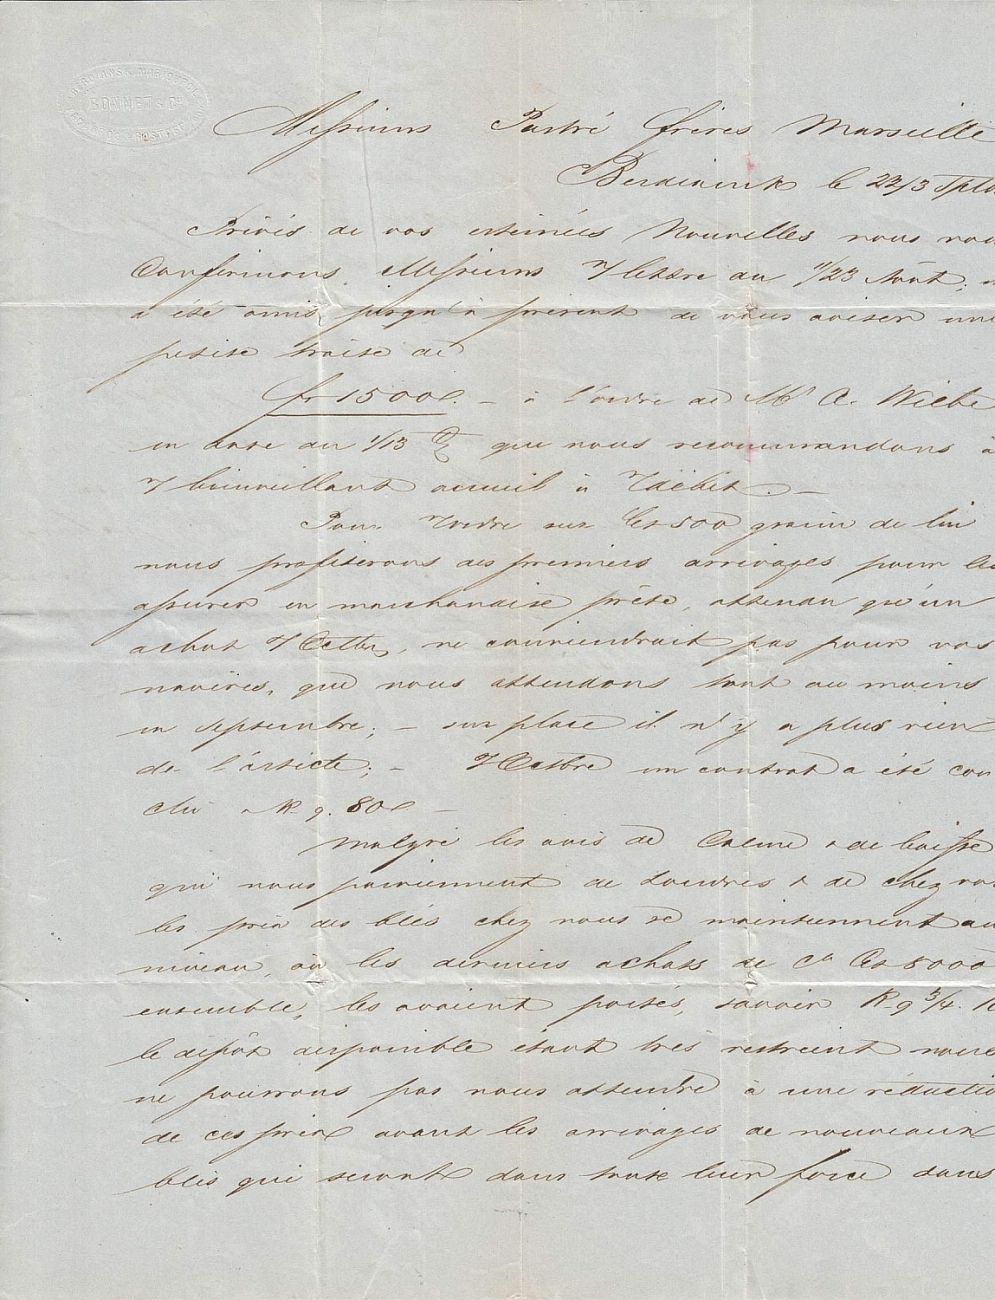 BONNET & Co.
Messieurs Pastré frères Marseille
Berdiansk le 22/3 7bre
Privés de vos estimées Nouvelles nous vous
Confirmons, Messieurs, n/ lettre du 11/23 Août;
a été omis jusqu'à présent de vous aviser une
petite traite de
fr 1500.– à l'ordre de Mr A. Wiebe
en date du 1/13 que nous recommandons à
v/ bienveillant accueil à n/ débit. –
Pour v/ordre sur Ct 500 graine de lin
nous profiterons des premiers arrivages pour les
assurer en marchandise prête, attendu qu'un
achat 7/8bre, ne conviendrait pas pour vos
navires, que nous attendons tout au moins
en septembre; – sur place il n'y a plus rien
de l'article; – 7/8bre un contrat a été con
clu à R 9. 80 –
Malgré les avis de Calme & de baisse
qui nous parviennent de Londres & de chez vous
les prix des blés chez nous se maintiennent au
niveau, où les derniers achats de ca Ct 8000
ensemble, les avaient portés, savoir R. 9 3/4. 10
le dépôt disponible étant très restreint nous
ne pourrons pas nous attendre à une réductio
de ces prix avant les arrivages de nouveaux
blés qui seront dans toute leur force dans